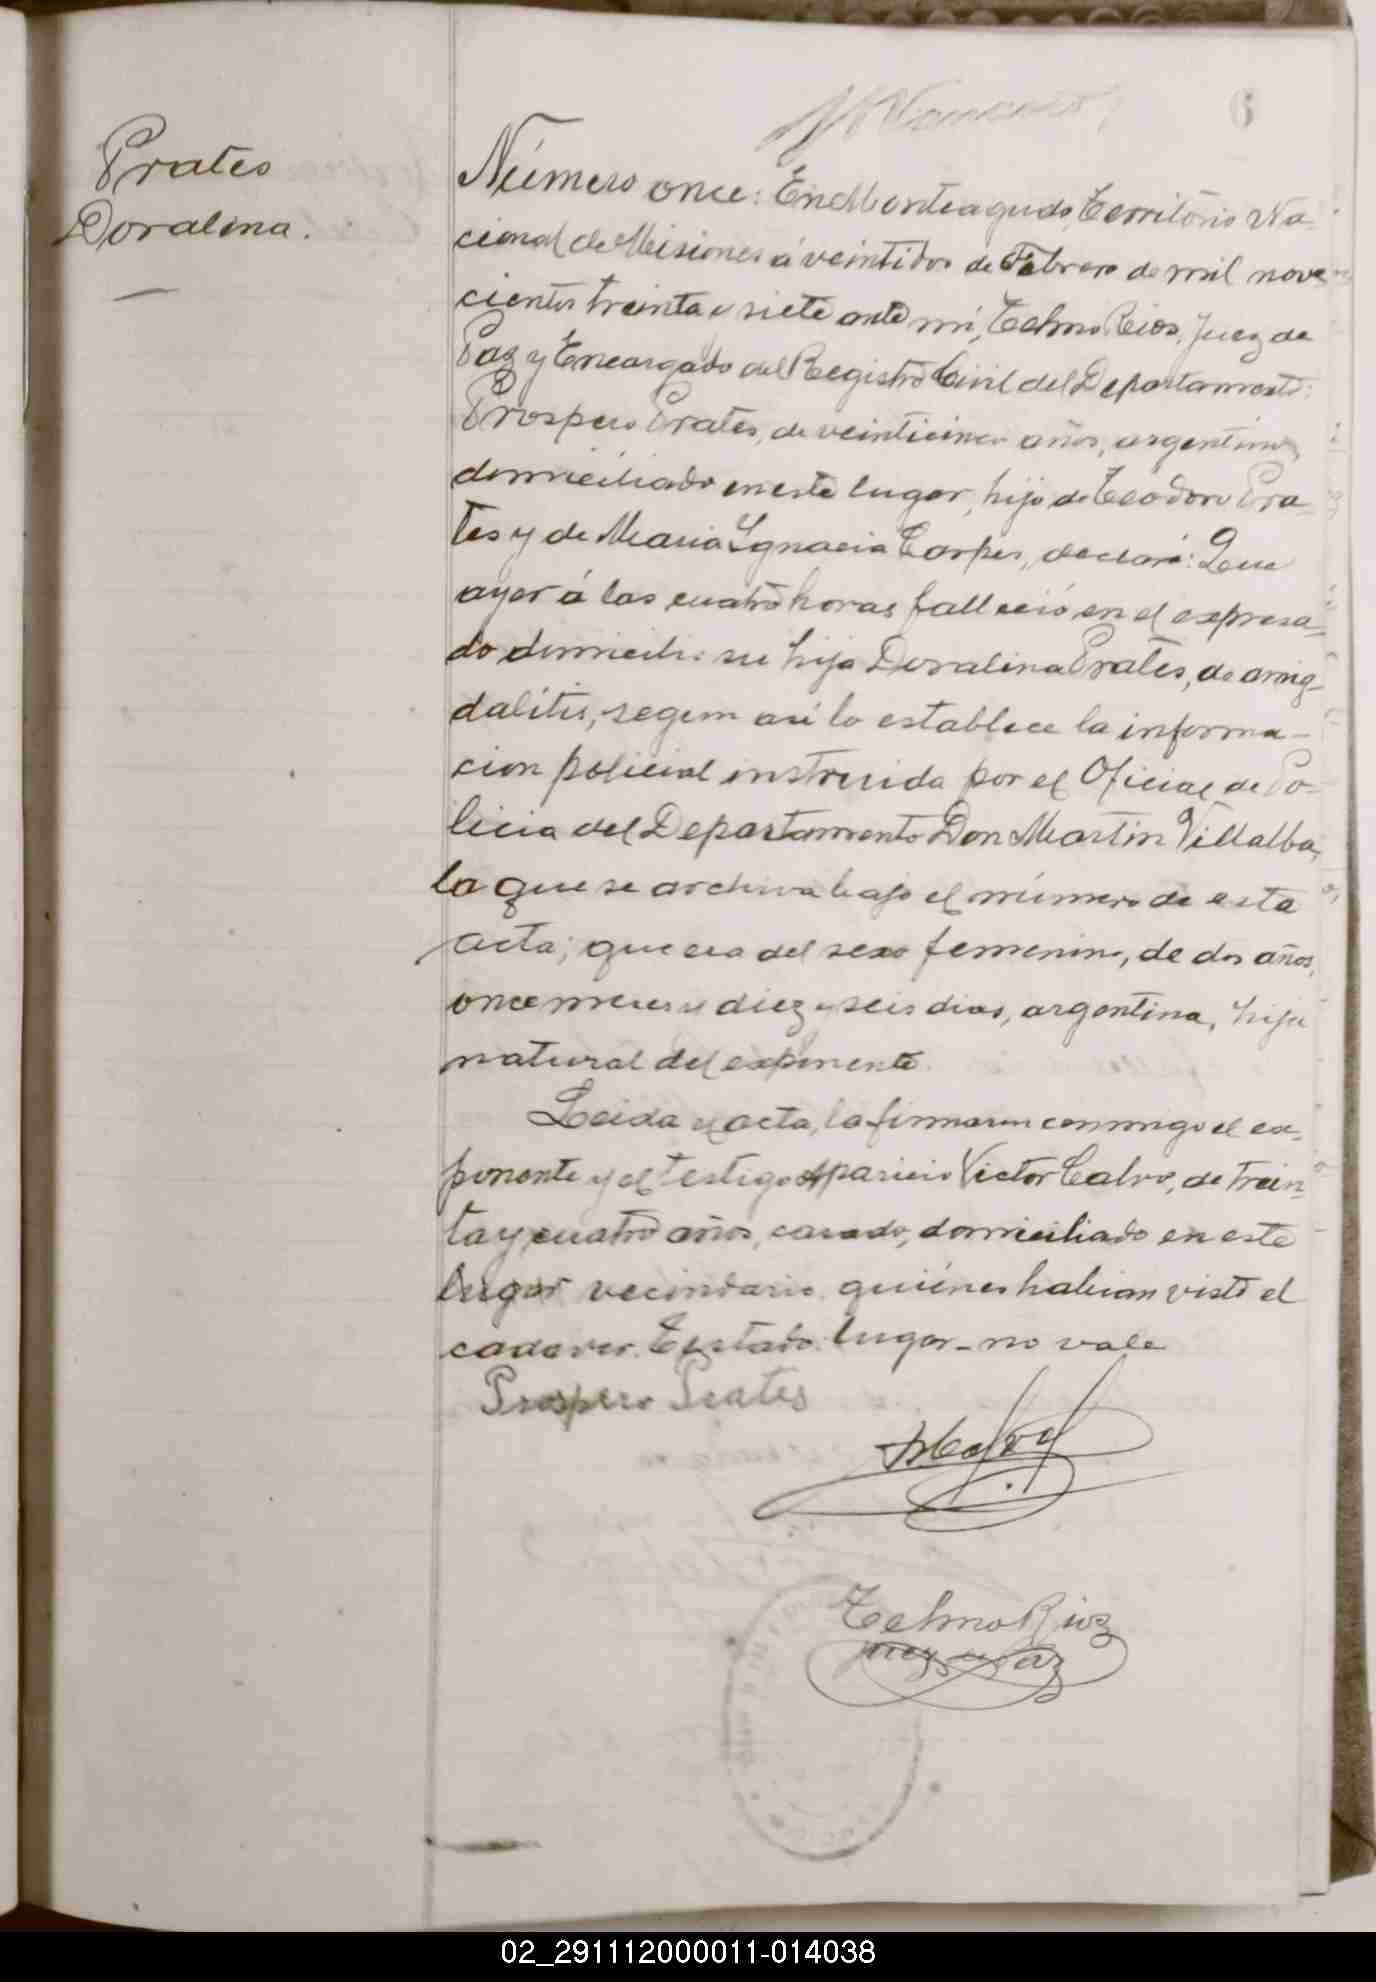 6
Prates
Doralina.
Número once: En Monteagudo, Territorio Na-
cional de Misiones á veintidos de Febrero de mil nove
cientos treinta y siete ante mi, Telmo Rios, Juez de
Paz y Encargado del Registro Civil del Departamento:
Prospero Prates, de veinticinco años, argentino,
domiciliado en este lugar, hijo de Teodoro Pra-
tes y de Maria Ignacia, declaró: Que
ayer á las cuatro horas falleció en el expresa-
do domicilio su hija Doralina Prates, de amig-
dalitis, segun asi lo establece la informa-
cion policial instruida por el Oficial de Po-
licia del Departamento Don Martin Villalba,
la que se archiva bajo el número de esta
acta; que era del sexo femenino, de dos años,
once meses y diez y seis dias, argentina, hija
natural del exponente.
Leida el acta, la firmaron conmigo el ex-
ponente y el testigo Aparicio Victor Calvo, de trein-
ta y cuatro años, casado, domiciliado en este
lugar vecindario quiénes habian visto el
cadaver. Testado: lugar - no vale
Prospero Prates
Telmo Rios
Juez de Paz
02_291112000011-014038